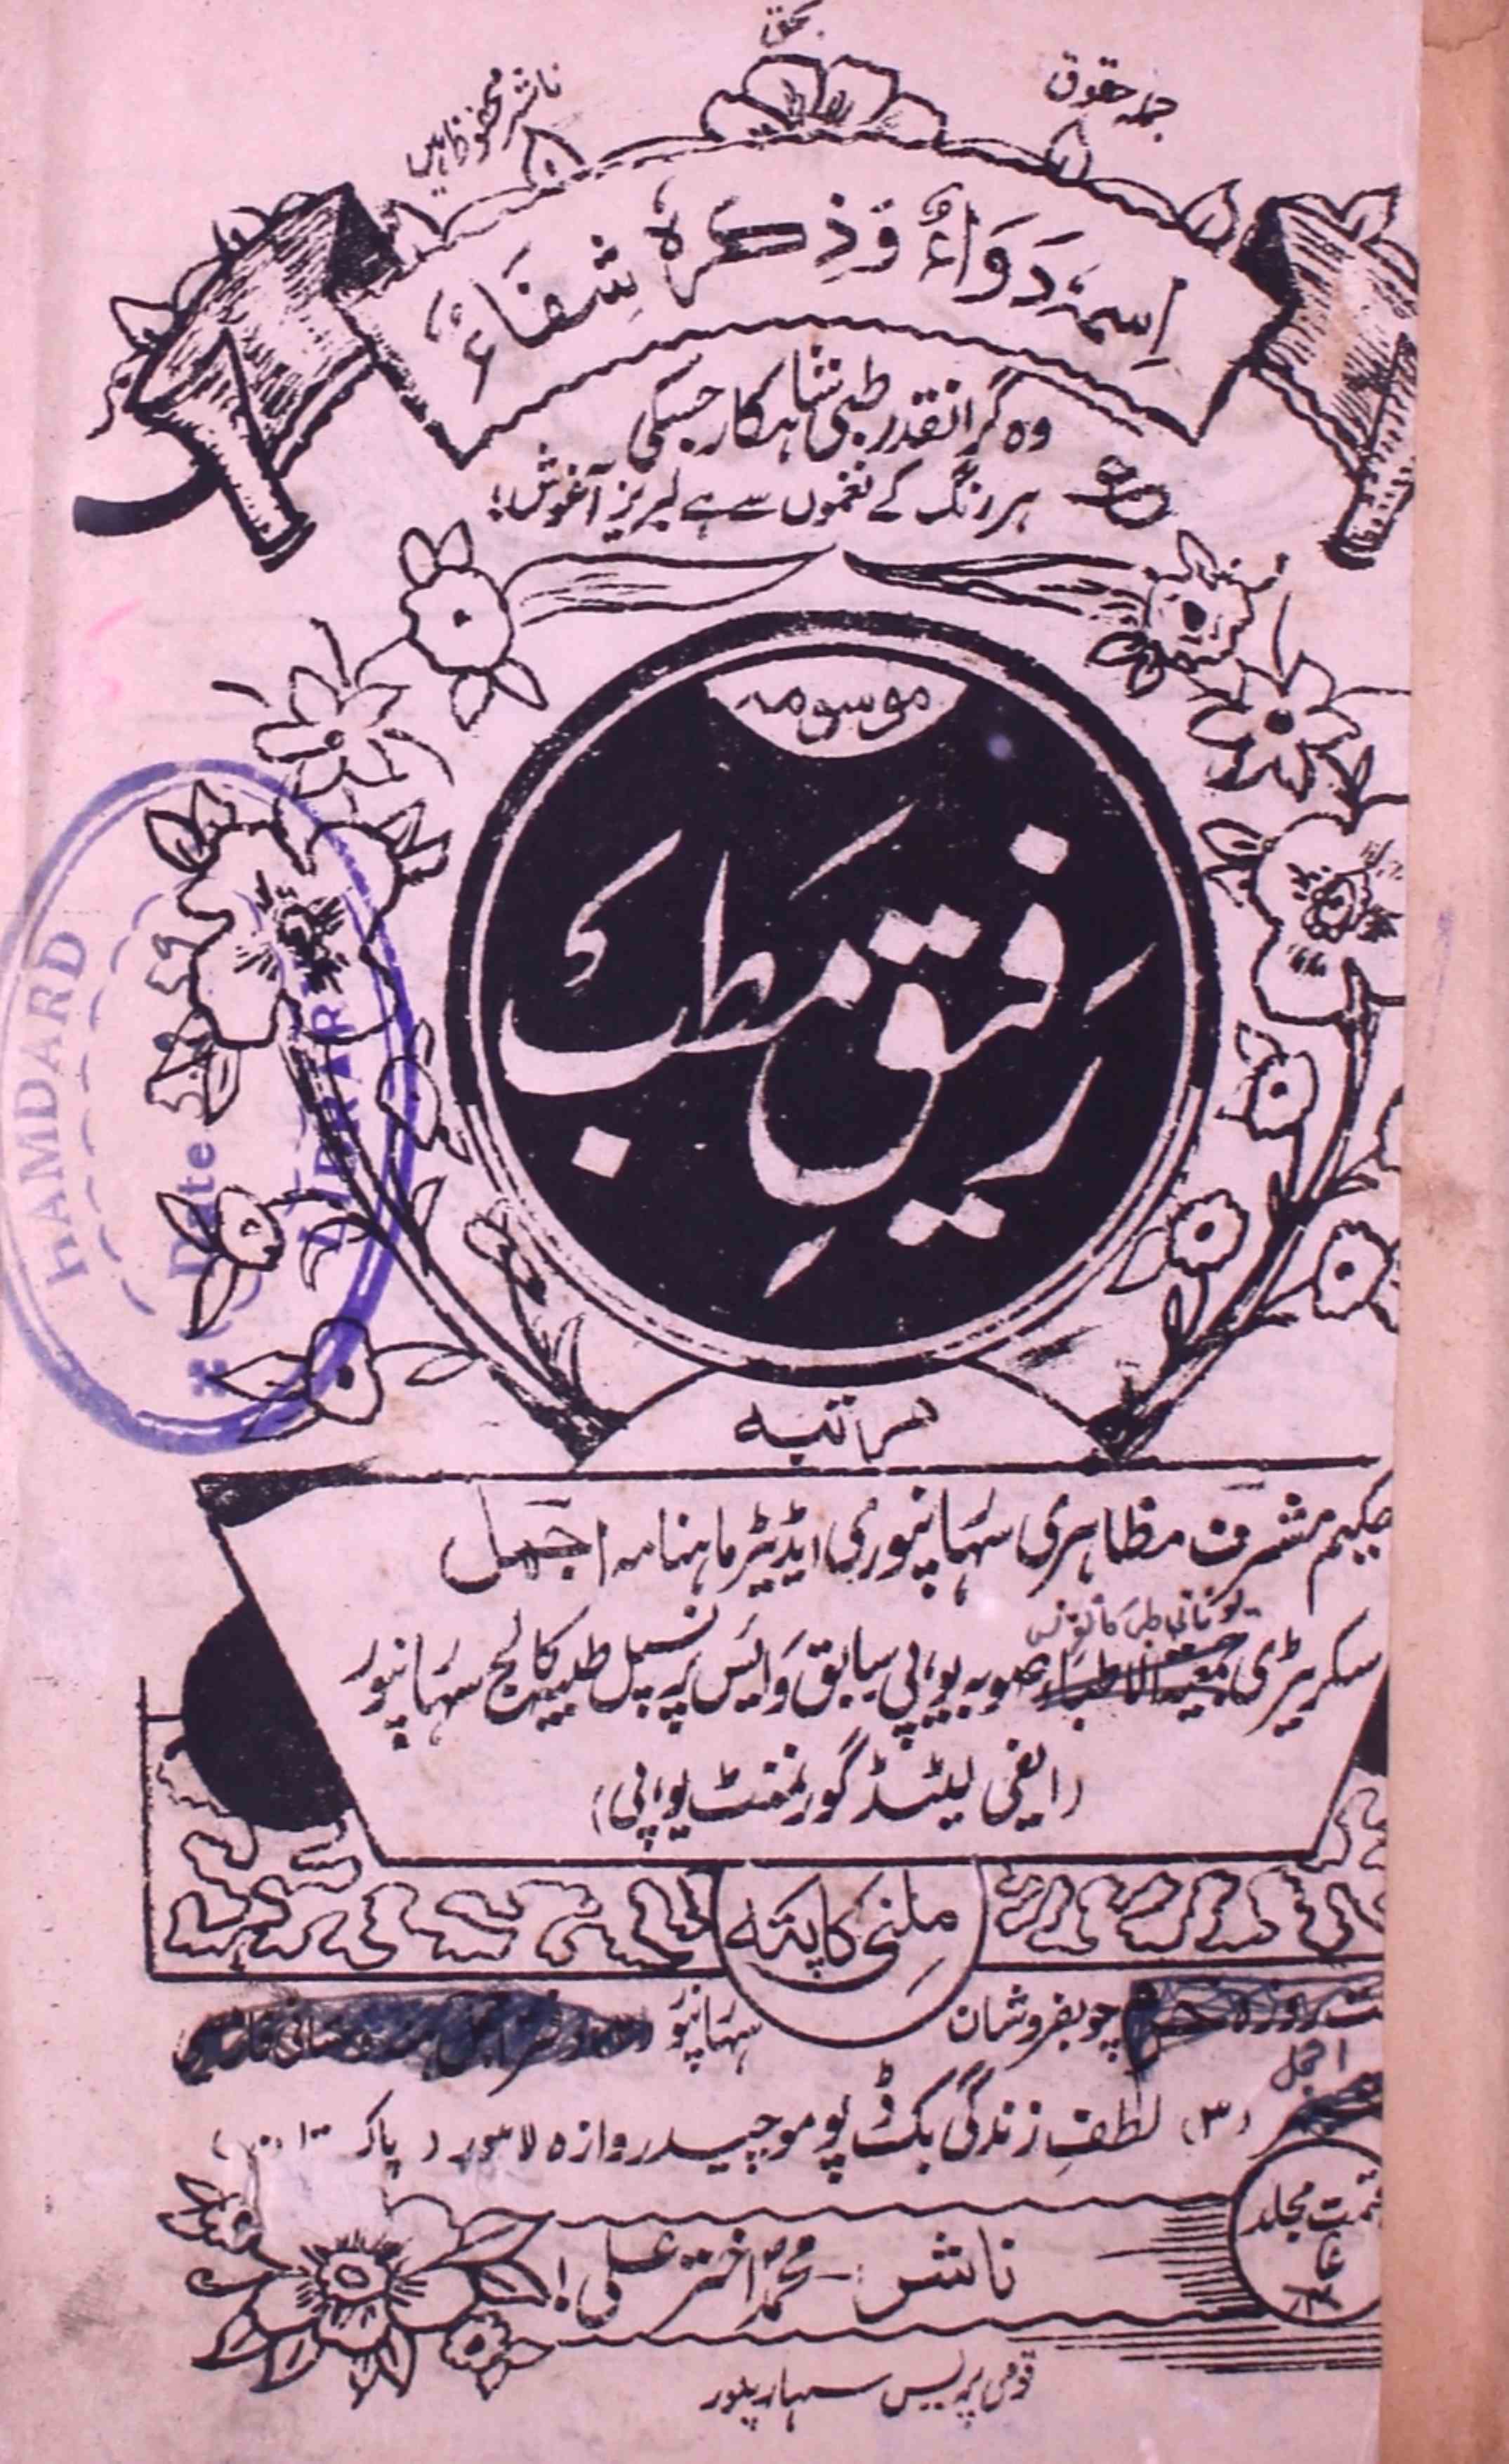 جملہ حقوق
بحق
ناشر محفوظ ہیں
اِسمہٗ دَوَاءٌ وَّذِکرہٗ شِفَاءٌ
وہ گرانقدر طبی شاہکار جسکی
ہر رنگ کے نغموں سے ہے لبریز آغوش!
موسومہ
رفیقِ مطب
مرتبہ
حکیم مشرف مظاہری سہارنپوری ایڈیٹر ماہنامہ اجمل
یونانی طبی کانفرنس
سکریٹری جمعیۃ الاطباء صوبہ یوپی سابق وائس پرنسپل طبیہ کالج سہارنپور
(ایفی لیٹڈ گورنمنٹ یوپی)
ملنے کا پتہ
چوبفروشان سہارنپور
اجمل
(۳) لطفِ زندگی بکڈپو موچیدروازہ لاہور (پاکستان)
قیمت مجلد
ناشر:- محمد اختر علی!
قومی پریس سہارنپور
HAMDARD
Date
LIBRARY